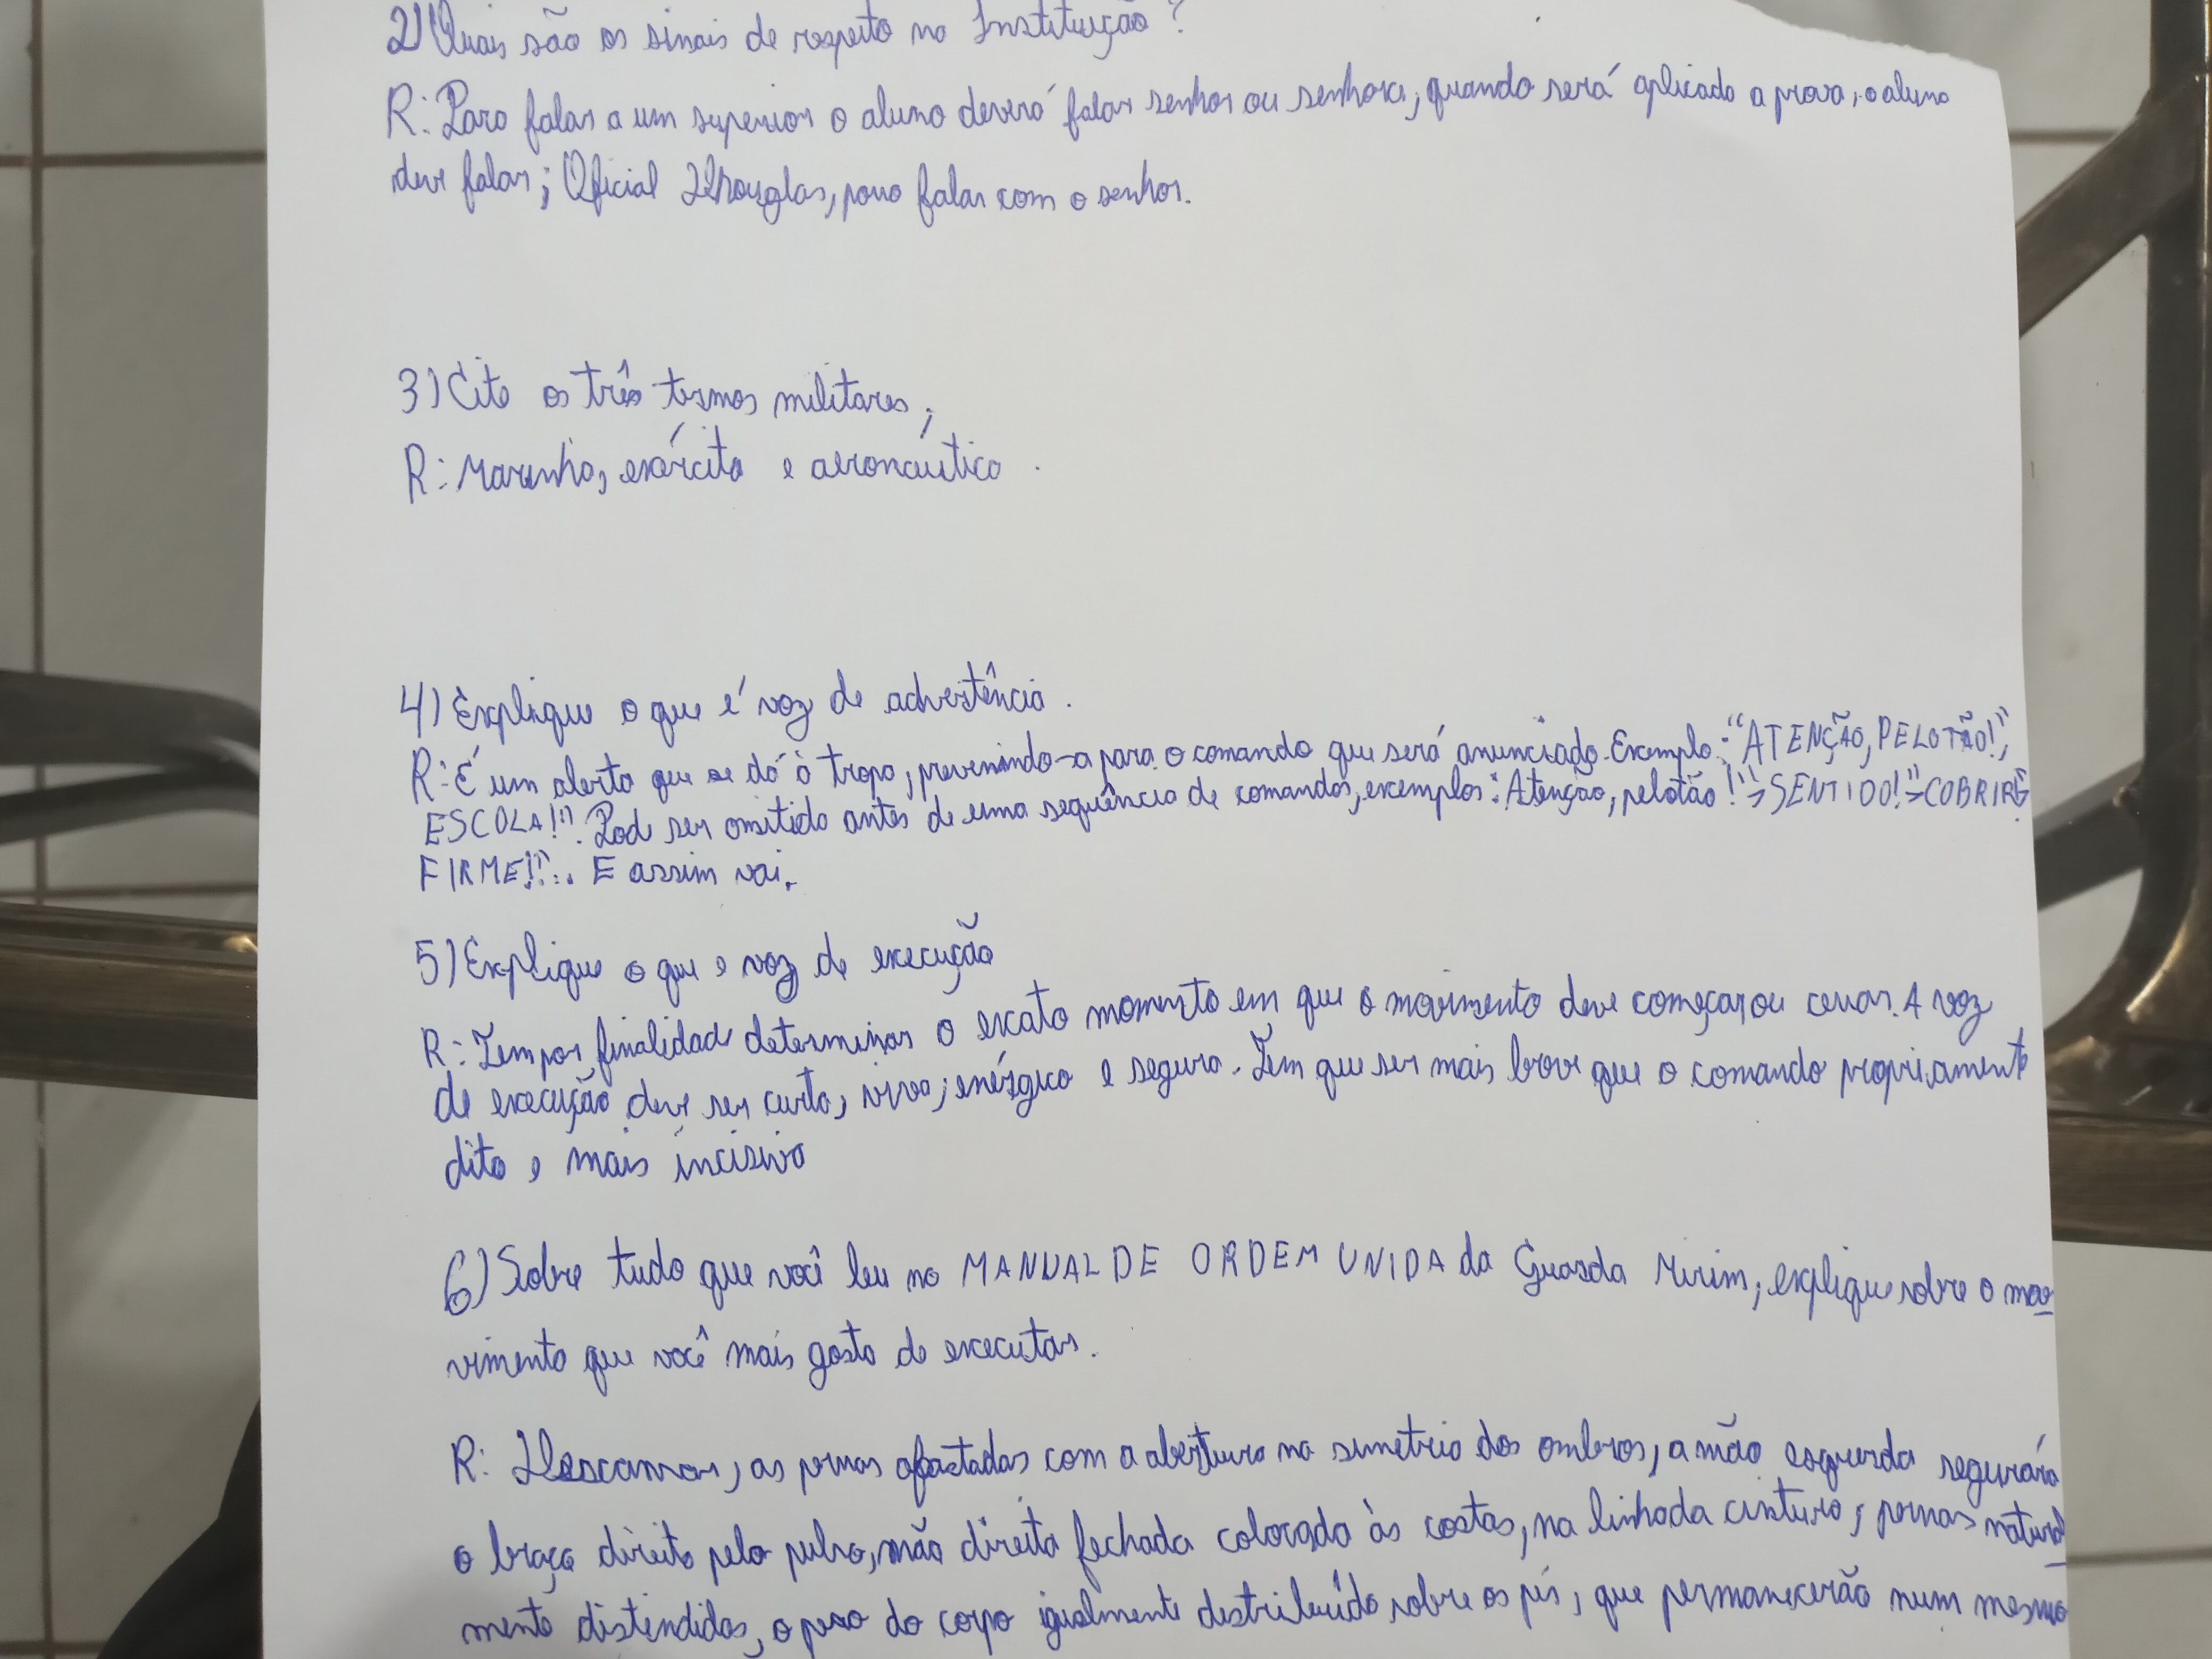 2) Quais são os sinais de respeto na Instituição?
R: Para falar a um superior o aluno deverá falar senhor ou senhora, quando será aplicado a prova, o aluno
deve falar; Oficial para falar com o senhor.
3) Cite os três termos militares,
R: Marinha, exército e aronáutica.
4) Explique o que é voz de advertência.
R: É um alerta que se dá à tropa, prevenindo-a para o comando que será anunciado. Exemplo: "ATENÇÃO, PELOTÃO!",
ESCOLA!!!. Pode ser omitida antes de uma sequência de comandos, exemplos: Atenção, pelotão!"> SENTIDO!"> COBRIR!>
FIRME!!". E assim vai.
5) Explique o que e voz de execução
R: Tem por finalidade determinar o exato momento em que o movimento deve começar ou cessar. A voz
de execução deve ser curta, viva, enérgica e segura. Tem que ser mais breve que o comando propriamente
dito e mais incisiva
6) Sobre tudo que você leu no MANUAL DE ORDEM UNIDA da Guarda Mirim, explique sobre o mo-
vimento que você mais gosta de executar.
R: Descansar, as pernas afastadas com a abertura na simetria dos ombros, a mão esquerda segurará
o braço direito pelo pulso, mão direita fechada colocada às costas, na linha da cintura, pernas natural-
mente distendidas, o peso do corpo igualmente distribuído sobre os pés, que permanecerão num mesmo